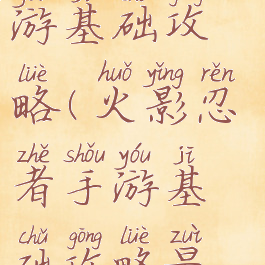 游基础攻
lüè huǒ yǐng rěn
略(火影忍
zhě shǒu yóu jī
者手游基
chǔ gōng lüè zuì
础攻略最